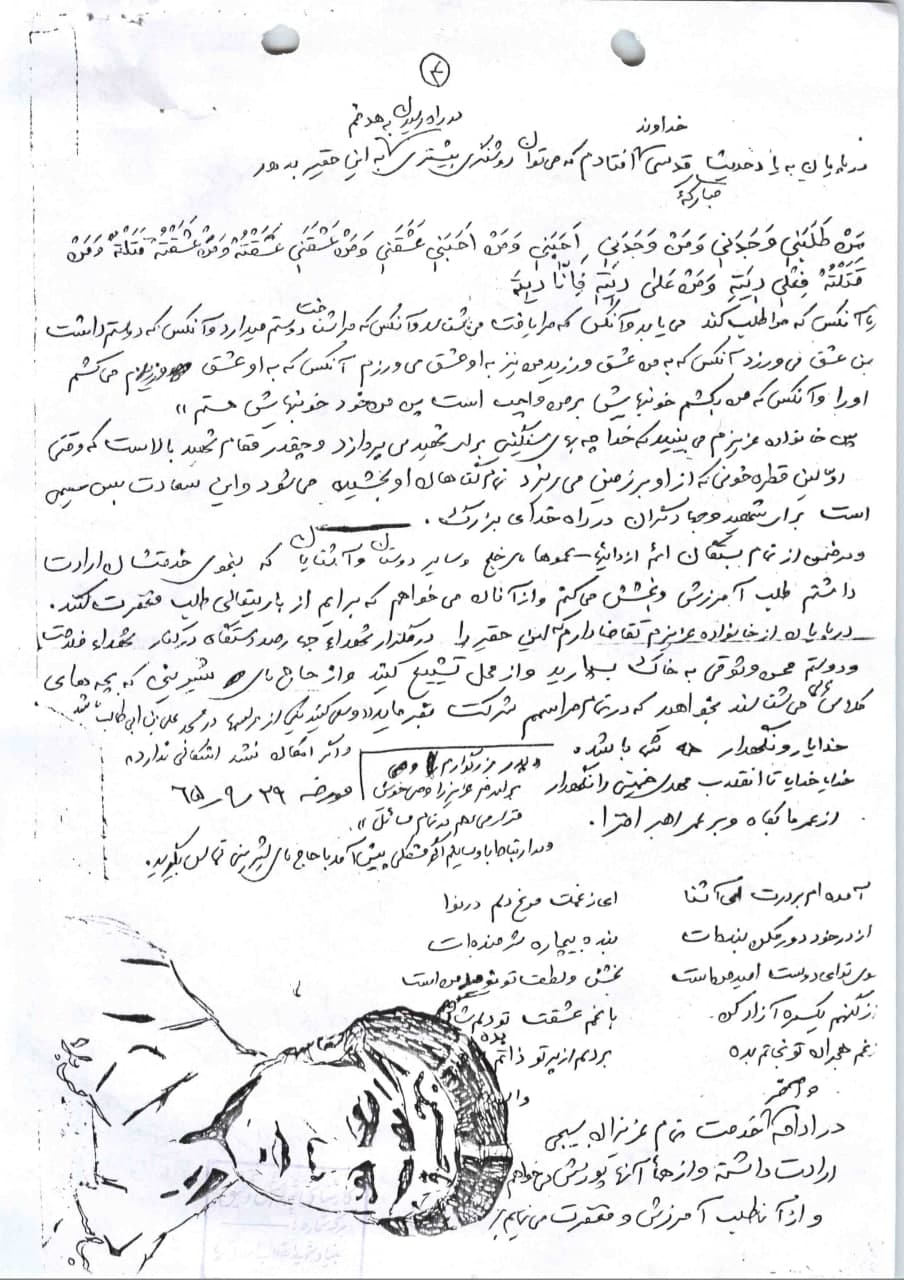 ۴
در راه رسیدن به هدفم
خداوند
در پایان به یاد حدیث قدسی افتادم که می‌توان روشنگری بیشتری به این حقیر بدهد
مبارکه
مَنْ طَلَبَنِي وَجَدَنِي وَمَنْ وَجَدَنِي أَحَبَّنِي وَمَنْ أَحَبَّنِي عَشَقَنِي وَمَنْ عَشَقَنِي عَشَقْتُهُ وَمَنْ عَشَقْتُهُ قَتَلْتُهُ وَمَنْ
قَتَلْتُهُ فَعَلَيَّ دِيَتِهِ وَمَنْ عَلَى دِيَتِهِ فَأَنَا دِيَتُهُ
«آنکس که مرا طلب کند می‌یابد و آنکس که مرا یافت می‌شناسد و آنکس که مرا شناخت دوستم میدارد و آنکس که دوستم داشت
بمن عشق می‌ورزد آنکس که به من عشق ورزید من نیز به او عشق می‌ورزم آنکس که به او عشق ورزیدم می‌کشم
او را و آنکس که من بکشم خونبهایش بر من واجب است پس من خود خونبهایش هستم»
پس خانواده عزیزم می‌بینید که خدا چه بهای سنگینی برای شهید می‌پردازد و چقدر مقام شهید بالاست که وقتی
اولین قطره خونی که از او بر زمین می‌ریزد تمام گناهان او بخشیده می‌شود و این سعادت بس عظیمی
است برای شهید و جهادگران در راه خدای بزرگ.
و در ضمن از تمام بستگان اعم از دائیها، عموها و سایر دوستان و آشنایان که بنحوی خدمتشان ارادت
داشتم طلب آمرزش و بخشش می‌کنم و از آنان می‌خواهم که برایم از باریتعالی طلب مغفرت کنند.
در پایان از خانواده عزیزم تقاضا دارم که این حقیر را در گلزار شهداء در کنار شهداء
و دوستم وثوقی به خاک بسپارید و از محل تشییع کنید و از حاج آقای شیرینی که بچه‌های
کلاس می‌شناسند بخواهید که در تمام مراسمم شرکت بفرمایند و سعی کنید یکی از مراسمها در مسجد علی بن ابی طالب باشد
و اگر امکان نشد اشکالی ندارد
خدایا رو نگهدار باشد.
و پدر بزرگوارم و
برادرم عزیزم را وصی خویش
قرار می‌دهم در تمام مسائل».
خدایا خدایا تا انقلاب مهدی خمینی را نگهدار
مورخه ۲۹ ر ۹ ر ۶۵
از عمر ما بکاه و بر عمر رهبر افزا.
و در ارتباط با وسایلم اگر مشکلی پیش آمد با حاج آقای شیرینی تماس بگیرید.
آمده‌ام بر درت ای آشنا ای ز غمت مرغ دلم در نوا
از در خود دور مکن بنده‌ات بنده بیچاره شرمنده‌ات
سوی تو ای دوست امید من است بخشش و لطف تو نوید من است
از گنهم یکسره آزاد کن. با غم عشقت تو دلم شاد
ز غم هجران تو نجاتم بده بر دلم از پرتو ذاتم بده
در ادامه خدمت تمام عزیزان بسیجی
ارادت داشته و از همه آنها پوزش می‌خواهم
و از آنها طلب آمرزش و مغفرت می‌نمایم